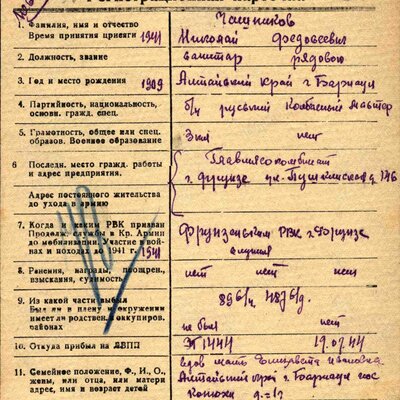 1. Фамилия, имя и отчество
Чашников
Время принятия присяги 1941
Николай Федосеевич
2. Должность, звание
санитар рядовой
3. Год и место рождения
1909
Алтайский край г Барнаул
4. Партийность, национальность,
основн. гражд. спец.
б/п русский Колбасный мастер
5. Грамотность, общее или спец.
образов. Военное образование
3 кл нет
6 Последн. место гражд. работы
и адрес предприятия.
Главмясокомбинат
г. Фрунзе ул. Пушкинская д 146
Адрес постоянного жительства
до ухода в армию
7. Когда и каким РВК призван
Продолж. службы в Кр. Армии
до мобилизации. Участие в вой-
нах и походах до 1941 г. 1941
Фрунзенским РВК г. Фрунзе
8. Ранения, награды, поощрен.,
взыскания, судимость
нет нет нет
9. Из какой части выбыл
Был ли в плену и окружении
имеет ли родствен. в оккупиров.
районах
896/ч
не был нет
10. Откуда прибыл на АВПП
ЭГ 1444 19.07.44
11. Семейное положение, Ф., И., О.,
жены, или отца, или матери
адрес, имя и возраст детей
вдов мать Ивановна
Алтайский край г Барнаул